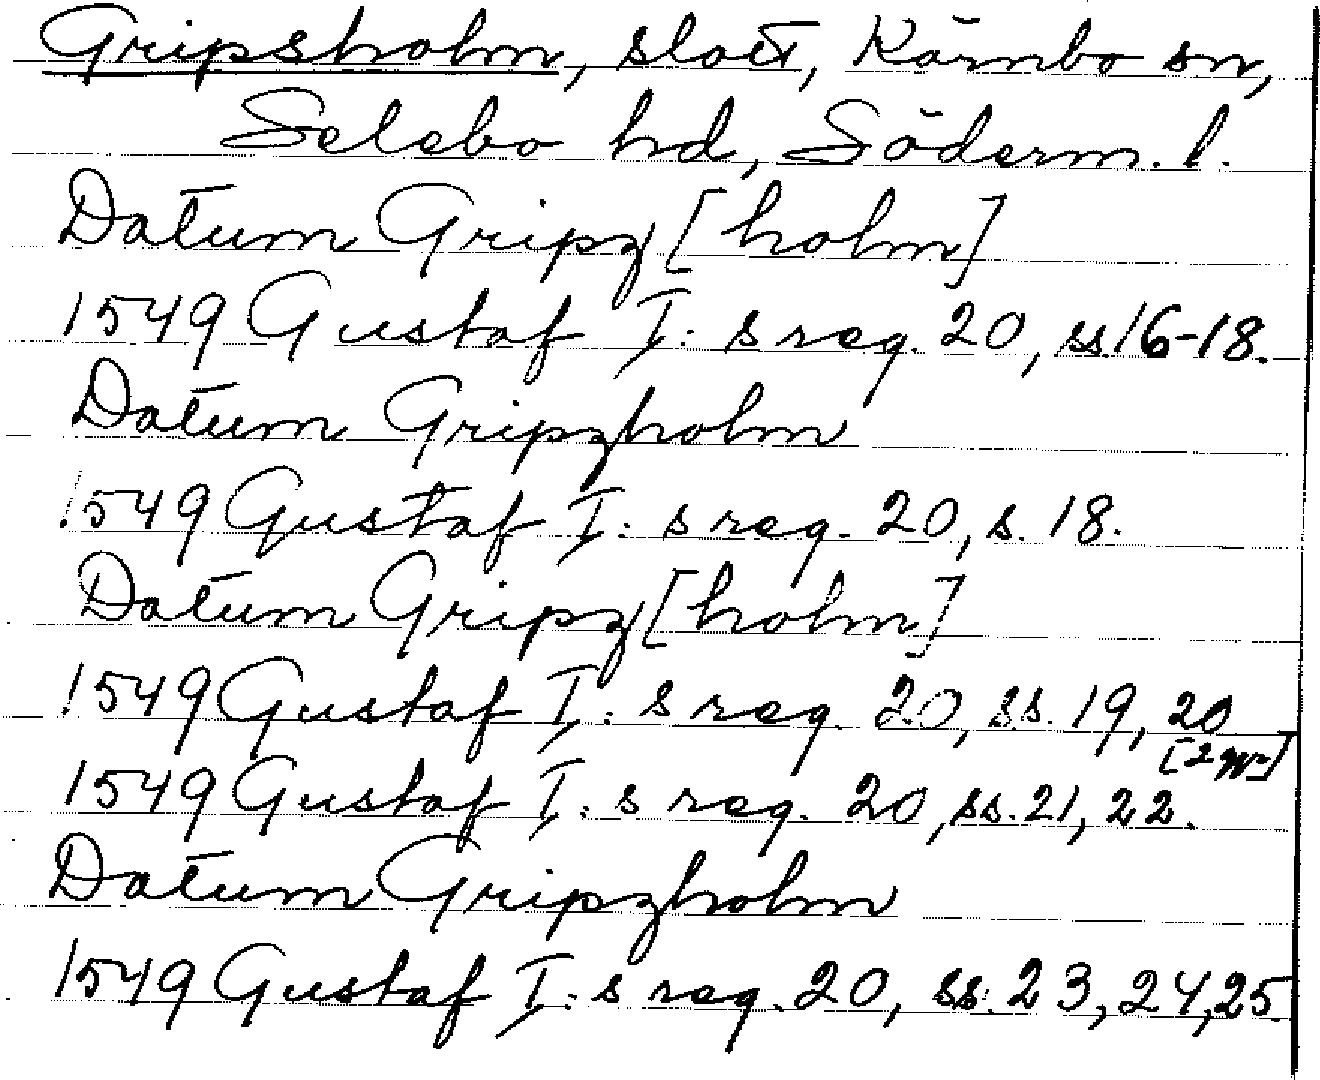 Gripsholm, slott, Kärnbo sn,
Selebo hd, Söderm. l.
Datum Gripz[holm]
1549 Gustaf I:s reg. 20, ss. 16-18.
Datum Gripzholm
1549 Gustaf I:s reg. 20, s. 18.
Datum Gripz[holm]
1549 Gustaf I:s reg. 20, ss. 19, 20
[2 ggr]
1549 Gustaf I:s reg. 20, ss. 21, 22.
Datum Gripzholm
1549 Gustaf I:s reg. 20, ss. 23, 24, 25